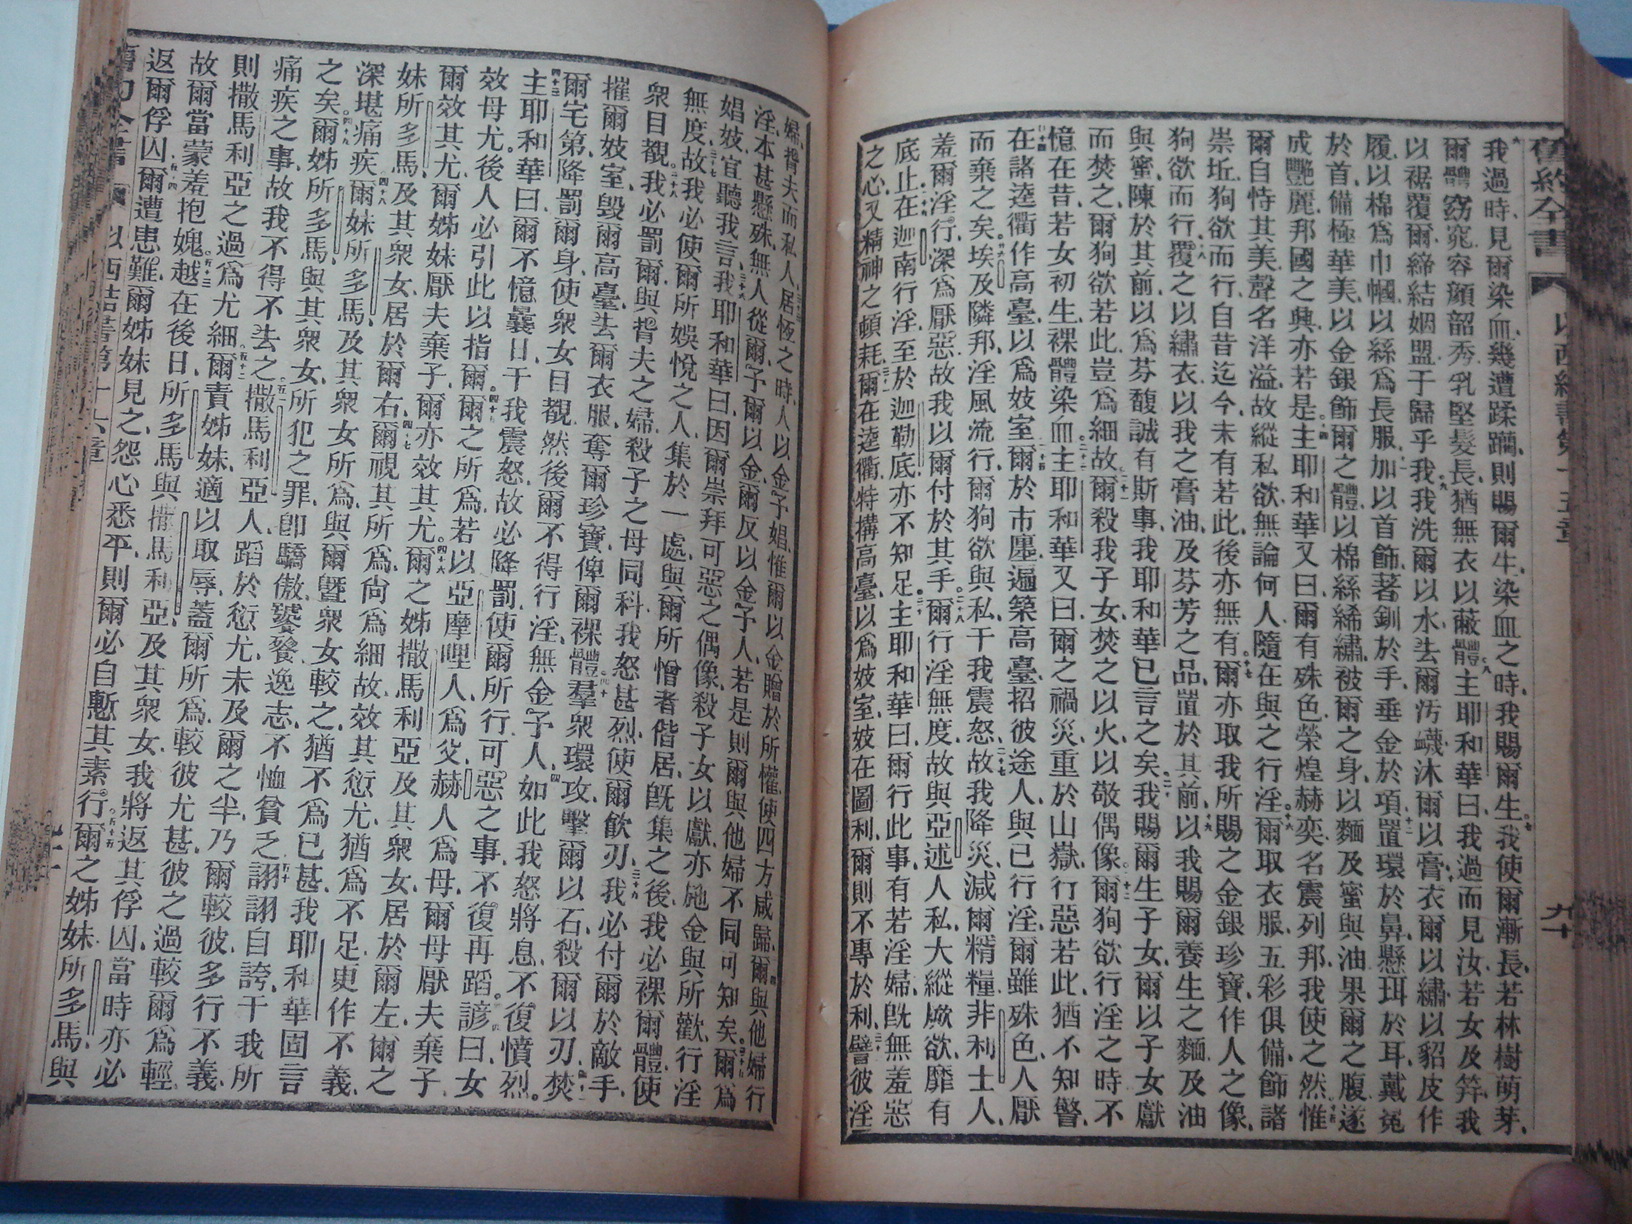 舊約全書 以西結書第十五章 九十
我過時見爾染血幾遭蹂躪則賜爾生染血之時我賜爾生我使爾漸長若林樹萌芽
爾體窈窕容顏韶秀乳堅髮長猶無衣以蔽體主耶和華曰我過而見汝若女及笄我
以裾覆爾締結姻盟于歸乎我我洗爾以水去爾汚衊沐爾以膏衣爾以繡以貂皮作
履以棉爲巾幗以絲爲長服加以首飾著釧於手垂金於項置環於鼻懸珥於耳戴冕
於首備極華美以金銀飾爾之體以棉絲絺繡被爾之身以麵及蜜與油果爾之腹遂
成艷麗邦國之興亦若是主耶和華又曰爾有殊色榮煌赫奕名震列邦我使之然惟
爾自恃其美聲名洋溢故縱私欲無論何人隨在與之行淫爾取衣服五彩俱備飾諸
崇坵狥欲而行自昔迄今未有若此後亦無有爾亦取我所賜之金銀珍寶作人之像
狥欲而行覆之以繡衣以我之膏油及芬芳之品置於其前以我賜爾養生之麵及油
與蜜陳於其前以爲芬馥誠有斯事我耶和華已言之矣我賜爾生子女爾以子女獻
而焚之爾狥欲若此豈爲細故爾殺我子女焚之以火以敬偶像爾狥欲行淫之時不
憶在昔若女初生裸體染血主耶和華又曰爾之禍災重於山嶽行惡若此猶不知警
在諸逵衢作高臺以爲妓室爾於市廛遍築高臺招彼途人與已行淫爾雖殊色人厭
而棄之矣埃及隣邦淫風流行爾狥欲與私干我震怒故我降災減爾糈糧非利士人
羞爾淫行深爲厭惡故我以爾付於其手爾行淫無度故與亞述人私大縱厥欲靡有
底止在迦南行淫至於迦勒底亦不知足主耶和華曰爾行此事有若淫婦旣無羞惡
之心又精神之頓耗爾在逵衢特構高臺以爲妓室妓在圖利爾則不專於利譬彼淫
婦背夫而私人居恆之時人以金予娼惟爾以金贈於所懽使四方咸歸爾與他婦行
淫本甚懸殊無人從爾予爾以金爾反以金予人若是則爾與他婦不同可知矣爾爲
娼妓宜聽我言我耶和華曰因爾崇拜可惡之偶像殺子女以獻亦施金與所歡行淫
無度故我必使爾所娛悅之人集於一處與爾所憎者偕居旣集之後我必裸爾體使
衆目覩我必罰爾與背夫之婦殺子之母同科我怒甚烈使爾飮刃我必付爾於敵手
摧爾妓室毀爾高臺去爾衣服奪爾珍寶俾爾裸體羣衆環攻擊爾以石殺爾以刃焚
爾宅第降罰爾身使衆女目覩然後爾不得行淫無金予人如此我怒將息不復憤烈
主耶和華曰爾不憶曩日干我震怒故必降罰使爾所行可惡之事不復再蹈諺曰女
效母尤後人必引此以指爾爾之所爲若以亞摩哩人爲父赫人爲母爾母厭夫棄子
爾效其尤爾姊妹厭夫棄子爾亦效其尤爾之姊撒馬利亞及其衆女居於爾左爾之
妹所多馬及其衆女居於爾右爾視其所爲尙爲細故效其愆尤猶爲不足更作不義
深堪痛疾爾妹所多馬及其衆女所爲與爾曁衆女較之猶不爲已甚我耶和華固言
之矣爾姊所多馬與其衆女所犯之罪卽驕傲饕餮逸志不恤貧乏詡詡自誇干我所
痛疾之事故我不得不去之撒馬利亞人蹈於愆尤未及爾之半乃爾較彼多行不義
則撒馬利亞之過爲尤細爾責姊妹適以取辱蓋爾所爲較彼尤甚彼之過較爾爲輕
故爾當蒙羞抱媿越在後日所多馬與撒馬利亞及其衆女我將返其俘囚當時亦必
返爾俘囚爾遭患難爾姊妹見之怨心悉平則爾必自慙其素行爾之姊妹所多馬與
以西結書第十六章